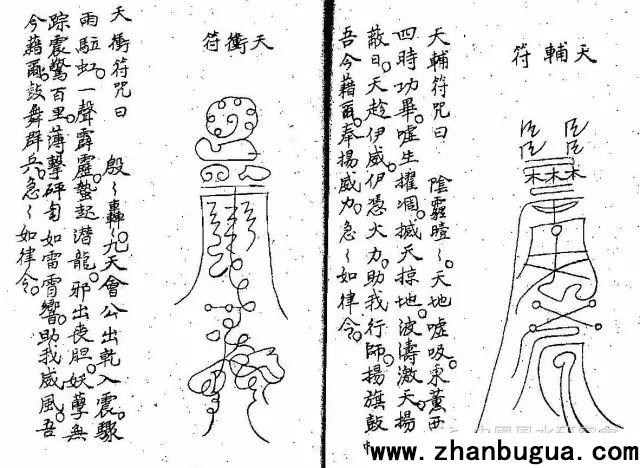 天輔符
天輔符咒曰 陰霾暄〻。天地噓吸。東薰西
四時功畢。噓生擢凋。撼天掠地。波濤激天。揚
蔽日。天趁伊威。伊憑火力。助我行師。揚旗鼓
吾今藉爾。奉揚威力。急〻如律令。
天衝符
天衝符咒曰 殷〻轟〻。九天會公。出乾入震。驟
雨駈虹。一聲霹靂。蟄起潜龍。邪出丧胆。妖孽無
踪。震驚百里。薄擊砰訇。如雷雪響。助我威風。吾
今藉爾。鼓舞群兵。急〻如律令。
www.zhanbugua.com